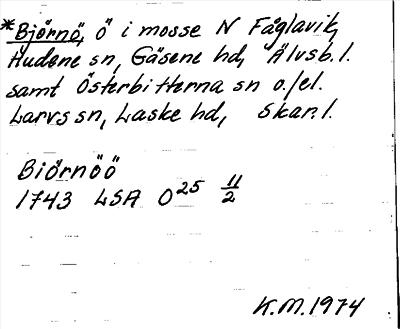 *Björnö, ö i mosse N Fåglavik,
Hudene sn, Gäsene hd, Älvsb. l.
samt Österbitterna sn o./el.
Larvs sn, Laske hd, Skar. l.
Biörnöö
1743 LSA O25 11/2
K.M. 1974